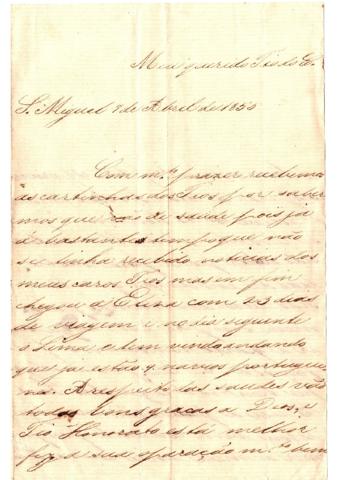 Meu querido Tio do C.
S. Miguel 7 de Abril de 1850
Com m.to prazer recebemos
as cartinhas dos Tios por saber
mos que são de saude pois ja
é bastante tempo que não
se tinha recebido noticias dos
meus caros Tios mas em fim
chegou a Elisa com 23 dias
de viagem e no dia siguente
o Lima e tem vindo andando
que ja estão 4 navios portugue
na. A respeito das saudes vão
todos bons graças a Deos, e
Tio Honorato está melhor
fez a sua operação m.to bem